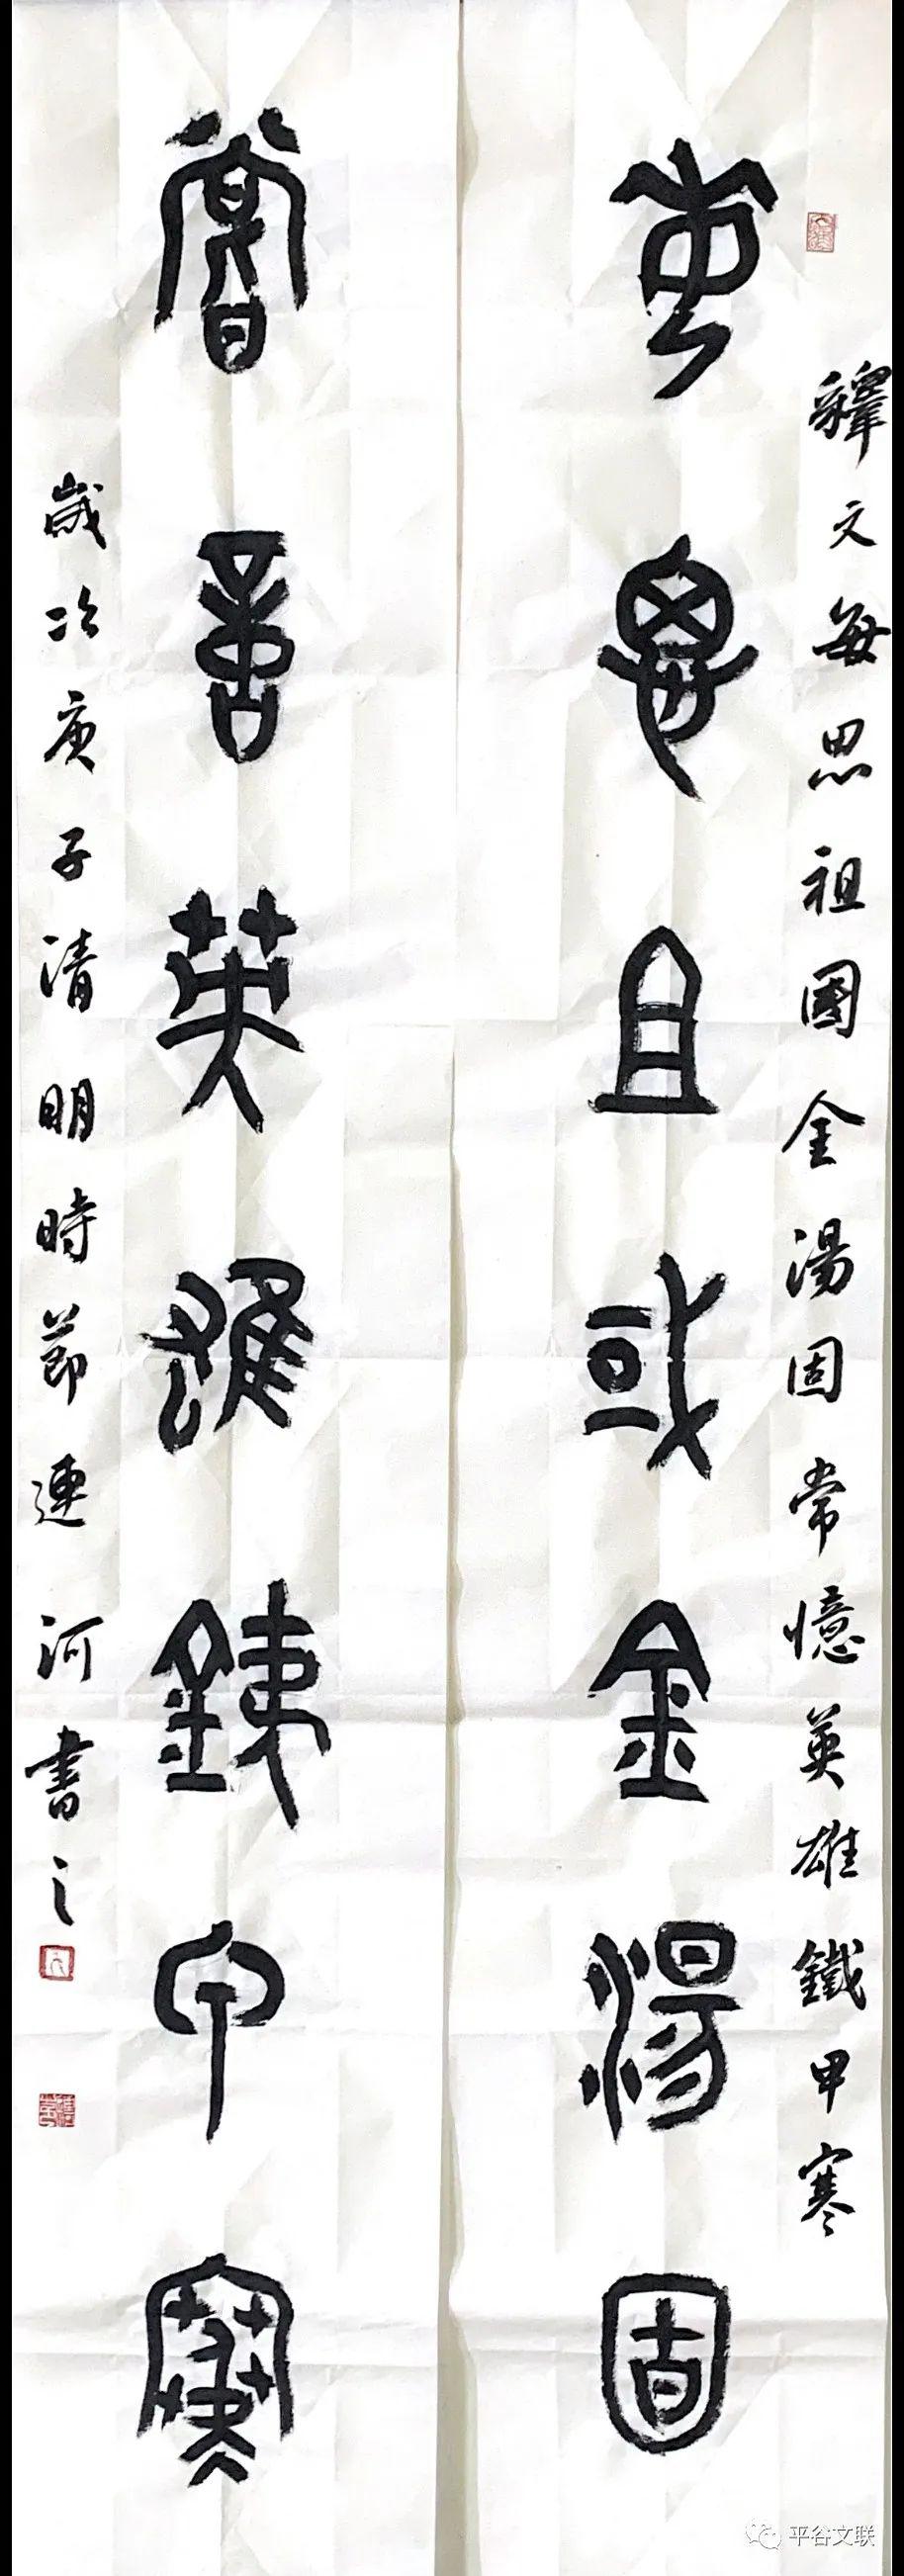 釋文每思祖國金湯固常憶英雄鐵甲寒
每思且或金湯固
嘗意英雄銕甲寒
歲次庚子清明時節連河書之
平谷文联